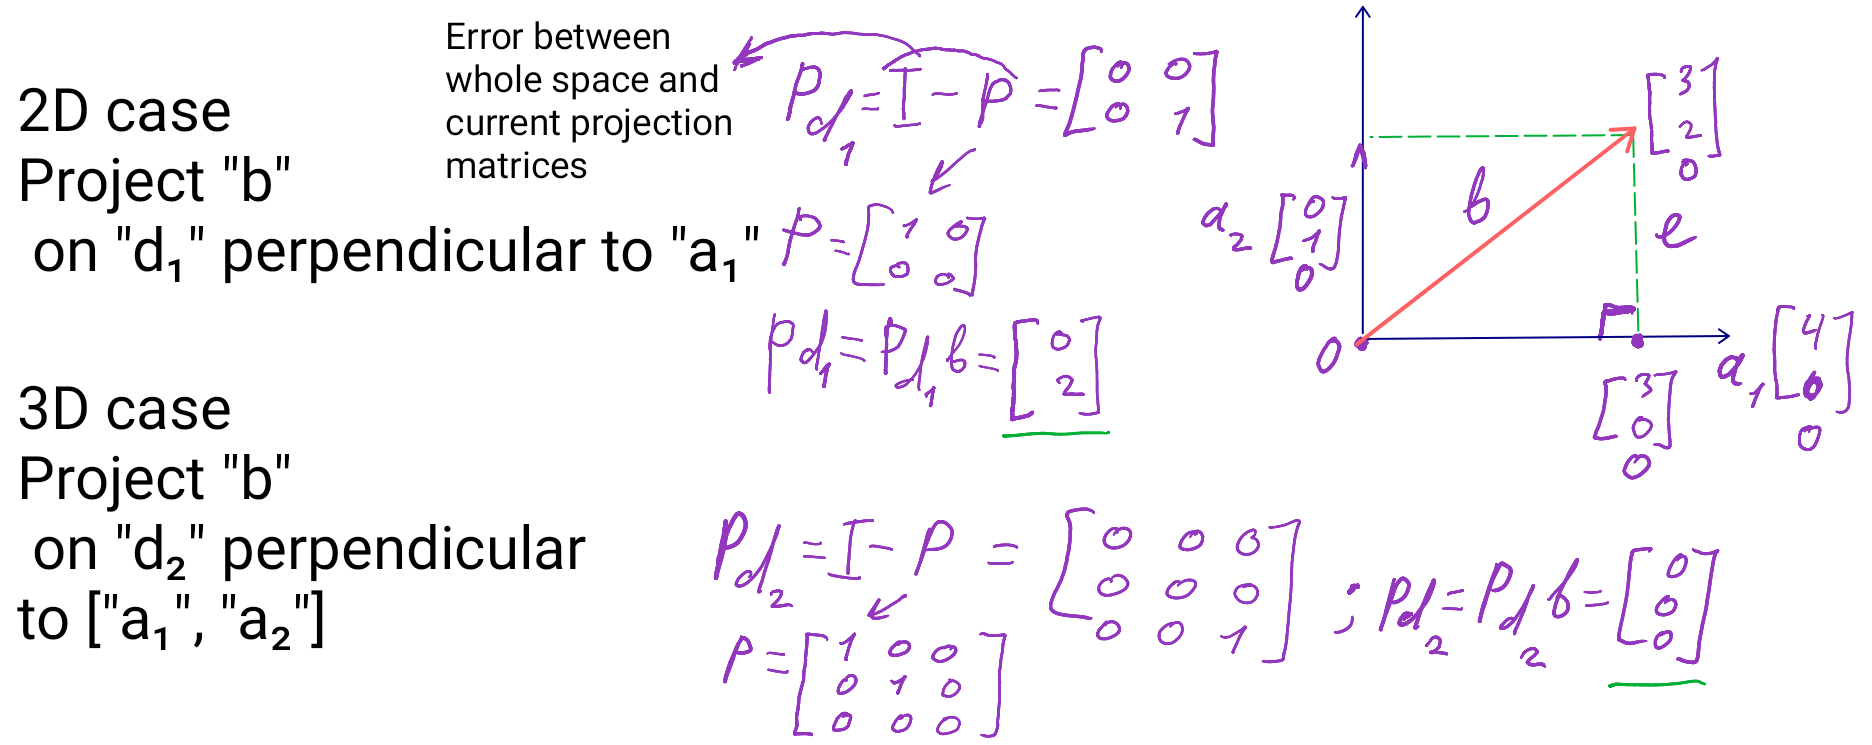 2D case
Project "b"
on "d₁" perpendicular to "a₁"
Error between
whole space and
current projection
matrices
P_d₁ = I - P = [0 0
0 1]
P = [1 0
0 0]
p_d₁ = P_d₁ b = [0
2]
[3
2]
0
b
e
a₂ [0
1]
0
0
a₁ [4
0]
0
[3
0]
0
3D case
Project "b"
on "d₂" perpendicular
to ["a₁", "a₂"]
P_d₂ = I - P = [0 0 0
0 0 0
0 0 1] ; p_d₂ = P_d₂ b = [0
0
0]
P = [1 0 0
0 1 0
0 0 0]